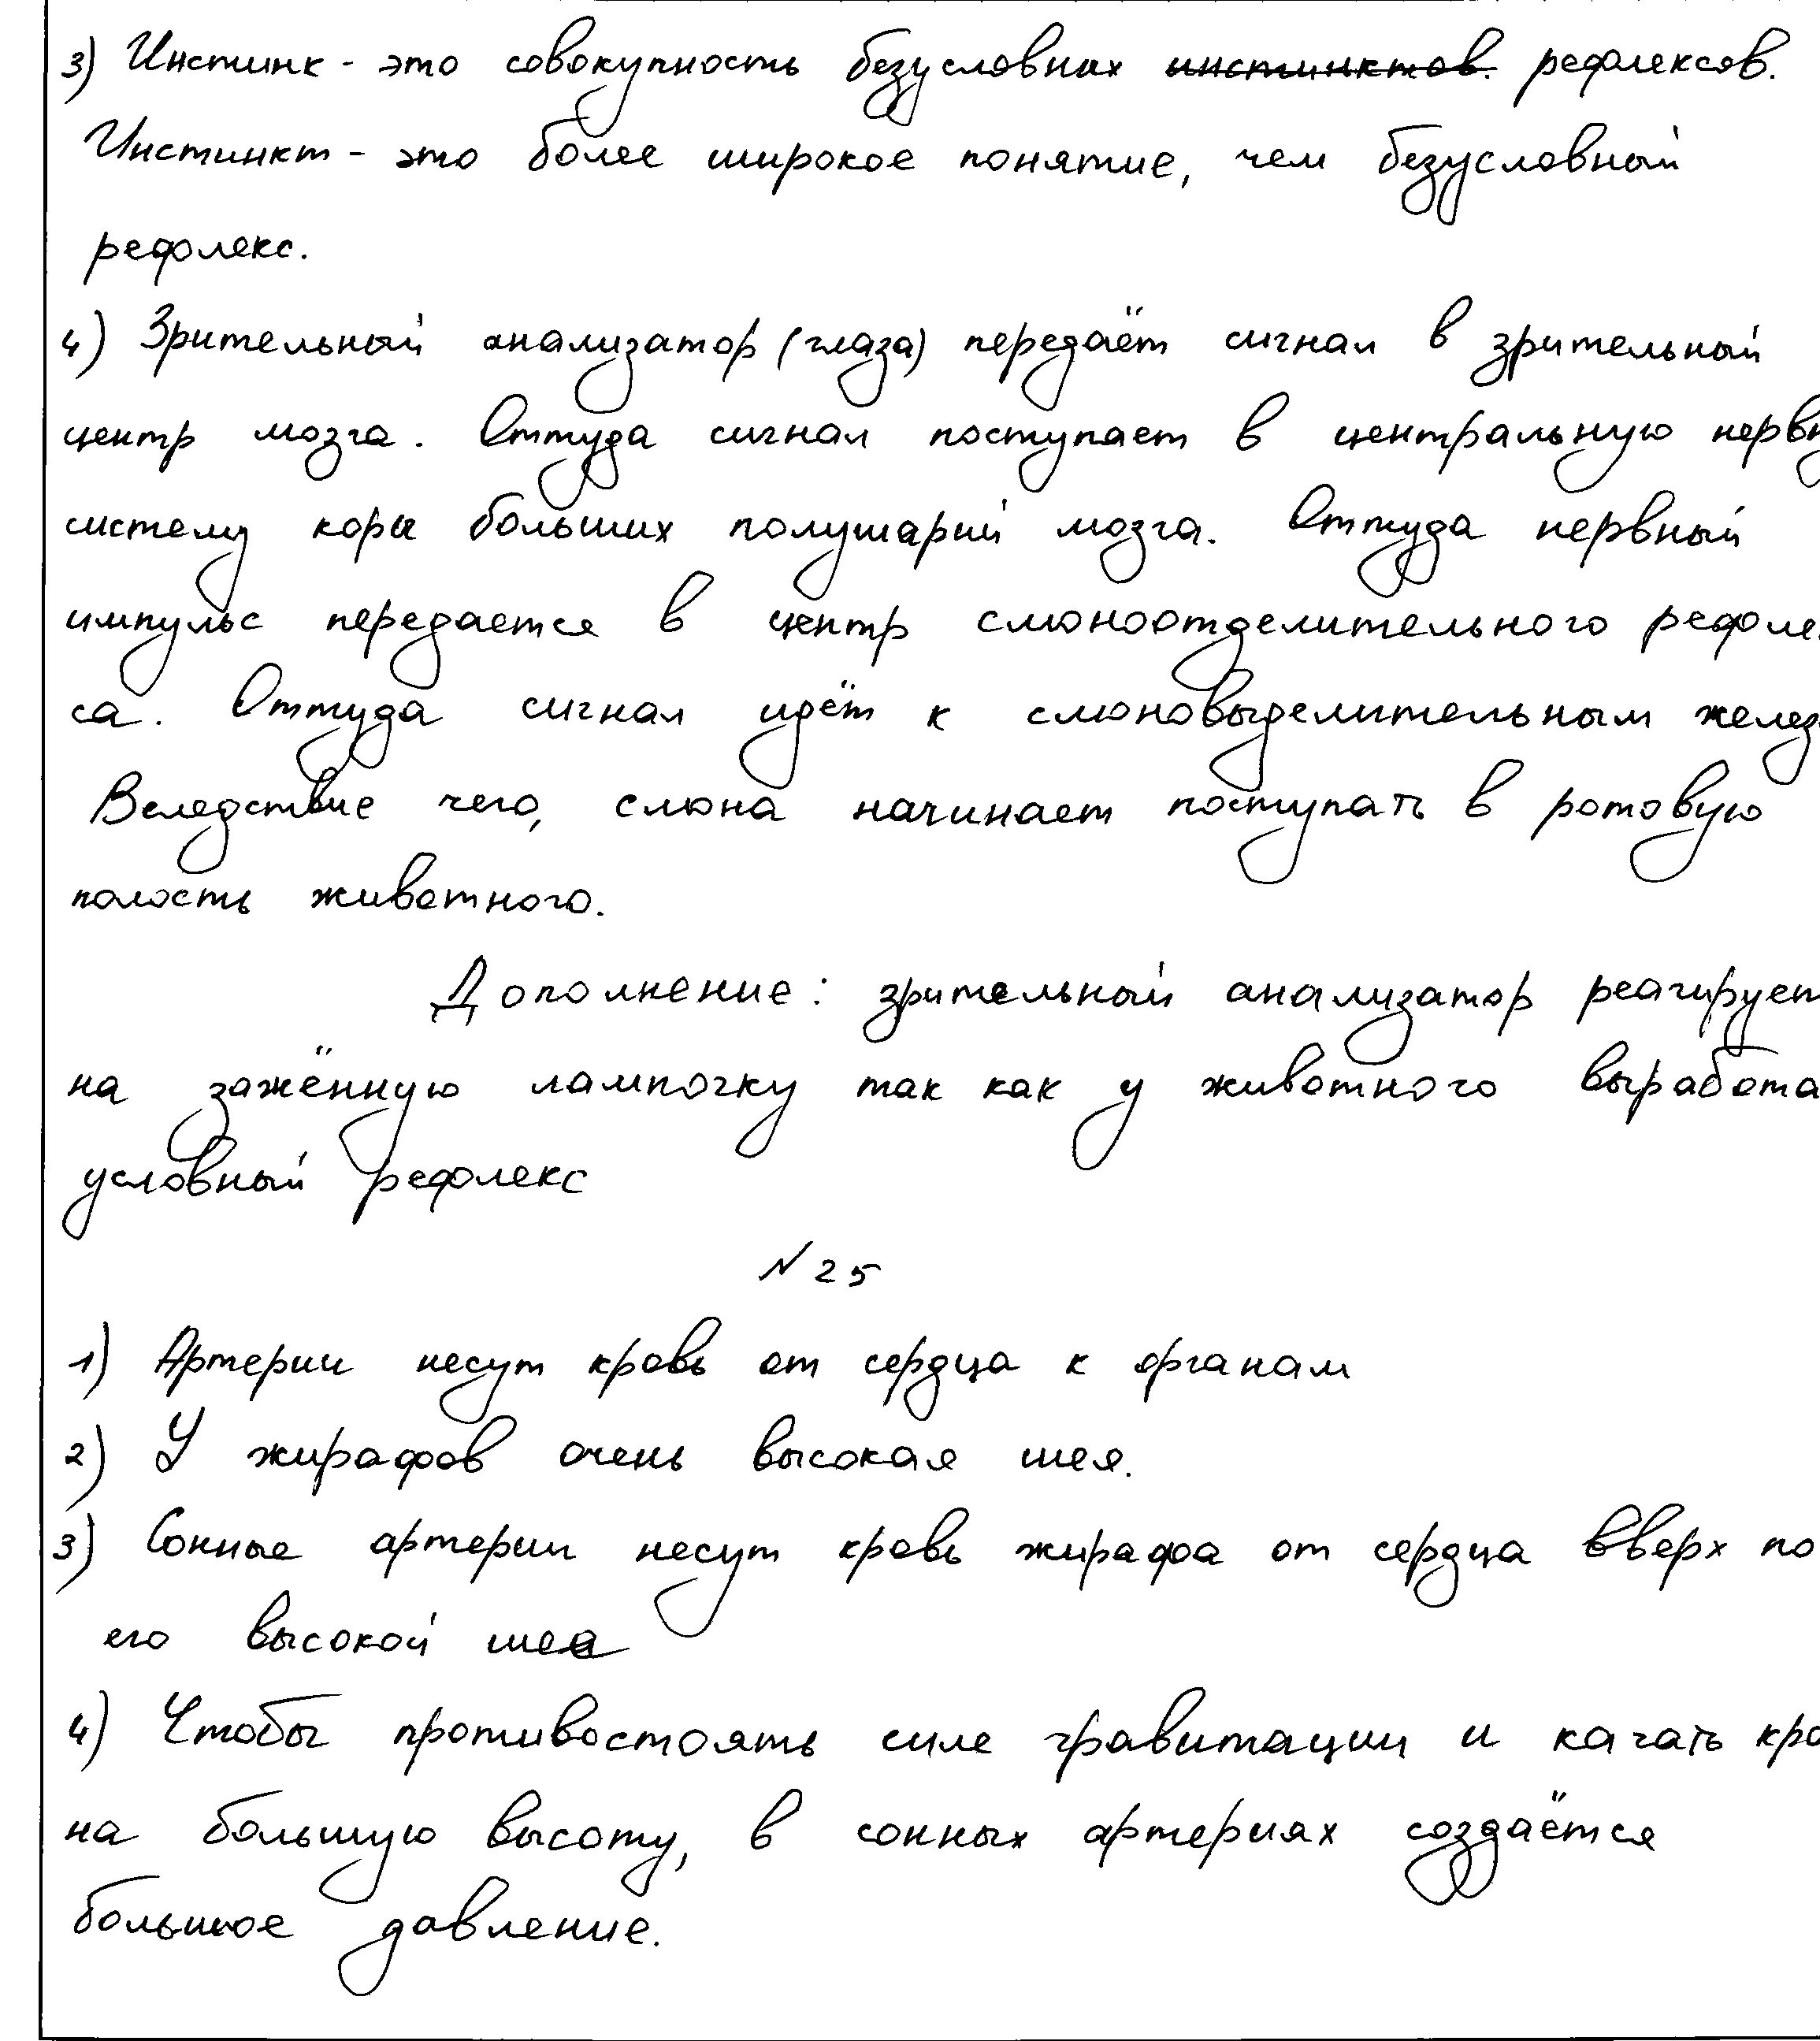 3) Инстинк - это совокупность безусловных ~~инстинктов.~~ рефлексов.
Инстинкт - это более широкое понятие, чем безусловный
рефлекс.
4) Зрительный анализатор (глаза) передаёт сигнал в зрительный
центр мозга. Оттуда сигнал поступает в центральную нерв
систему коры больших полушарий мозга. Оттуда нервный
импульс передается в центр слюноотделительного рефле
са. Оттуда сигнал идёт к слюновыделительным желез
Вследствие чего, слюна начинает поступать в ротовую
полость животного.
Дополнение: зрительный анализатор реагирует
на зажённую лампочку так как у животного выработа
условный рефлекс
№ 25
1) Артерии несут кровь от сердца к органам
2) У жирафов очень высокая шея.
3) Сонные артерии несут кровь жирафа от сердца вверх по
его высокой шее
4) Чтобы противостоять силе гравитации и качать кро
на большую высоту, в сонных артериях создаётся
большое давление.